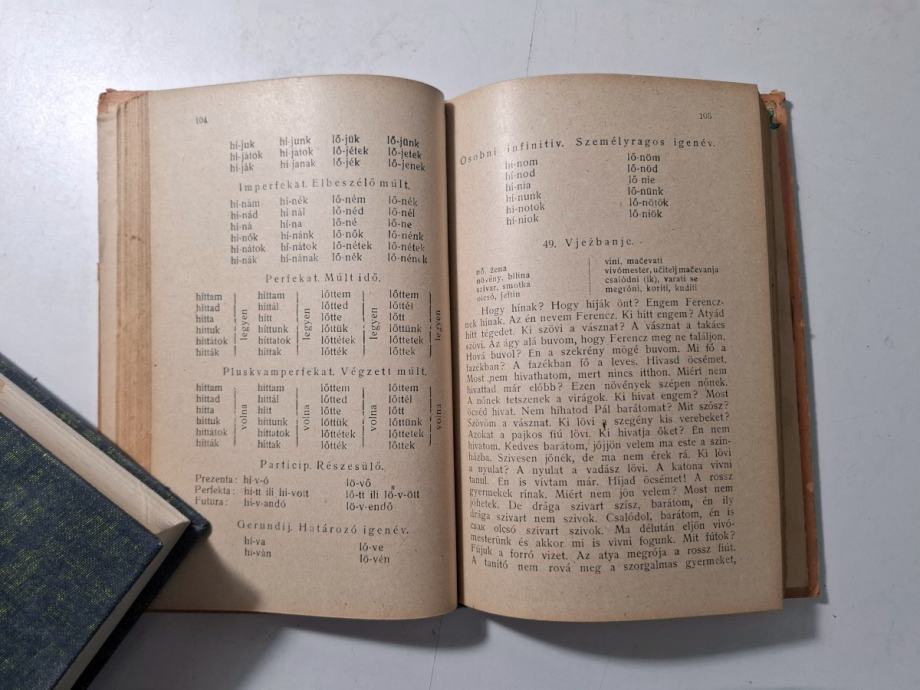 104
hí-juk hí-junk lő-jük lő-jünk
hí-játok hí-jatok lő-jétek lő-jetek
hí-ják hí-janak lő-jék lő-jenek
Imperfekat. Elbeszélő múlt.
hí-nám hí-nék lő-ném lő-nék
hí-nád hí-nál lő-néd lő-nél
hí-ná hí-na lő-né lő-ne
hí-nők hí-nánk lő-nők lő-nénk
hí-nátok hí-nátok lő-nétek lő-nétek
hí-nák hí-nának lő-nék lő-nének
Perfekat. Múlt idő.
híttam híttam lőttem lőttem
híttad híttál lőtted lőttél
hítta hítt lőtte lőtt
híttuk híttunk lőttük lőttünk
híttátok híttatok lőttétek lőttetek
hítták híttak lőtték lőttek
legyen legyen legyen legyen
Pluskvamperfekat. Végzett múlt.
híttam híttam lőttem lőttem
híttad híttál lőtted lőttél
hítta hítt lőtte lőtt
híttuk híttunk lőttük lőttünk
híttátok híttatok lőttétek lőttetek
hítták híttak lőtték lőttek
volna volna volna volna
Particip. Részesülő.
Prezenta: hí-v-ó lö-vő
Perfekta: hí-tt ili hí-vott lő-tt ili lő-v-ött
Futura: hí-v-andó lö-v-endő
Gerundij. Határozó igenév.
hí-va lő-ve
hí-ván lő-vén
105
Osobni infinitiv. Személyragos igenév.
hí-nom lő-nöm
hí-nod lő-nöd
hí-nia lő-nie
hí-nunk lő-nünk
hí-notok lő-nötök
hí-niok lő-niök
49. Vježbanje.
nő, žena
növény, bilina
szivar, smotka
olcsó, jeftin
vini, mačevati
vivómester, učitelj mačevanja
csalódni (ik), varati se
megróni, koriti, kuditi
Hogy hínak? Hogy híják önt? Engem Ferencz-
nek hínak. Az én nevem Ferencz. Ki hítt engem? Atyád
hítt tégedet. Ki szövi a vásznat? A vásznat a takács
szövi. Az ágy alá buvom, hogy Ferencz meg ne találjon.
Hová buvol? Én a szekrény mögé buvom. Mi fő a
fazékban? A fazékban fő a leves. Hívasd öcsémet.
Most nem hivathatom, mert nincs itthon. Miért nem
hivattad már előbb? Ezen növények szépen nőnek.
A nőnek tetszenek a virágok. Ki hivat engem? Most
öcséd hivat. Nem hihatod Pál barátomat? Mit szősz?
Szövöm a vásznat. Ki lövi a szegény kis verebeket?
Azokat a pajkos fiú lövi. Ki hivatja őket? Én nem
hivatom. Kedves barátom, jőjjön velem ma este a szin-
házba. Szivesen jőnék, de ma nem érek rá. Ki lövi
a nyulat? A nyulat a vadász lövi. A katona vivni
tanul. Én is vívtam már. Híjad öcsémet! A rossz
gyermekek rínak. Miért nem jön velem? Most nem
jöhetek. De drága szivart szísz, barátom, én ily
drága szivart nem szivok. Csalódol, barátom, én is
csak olcsó szivart szivok. Ma délután eljön vivó-
mesterünk és akkor mi is vivni fogunk. Mit fútok?
Fújuk a forró vizet. Az atya megrója a rossz fiút.
A tanító nem rová meg a szorgalmas gyermeket,